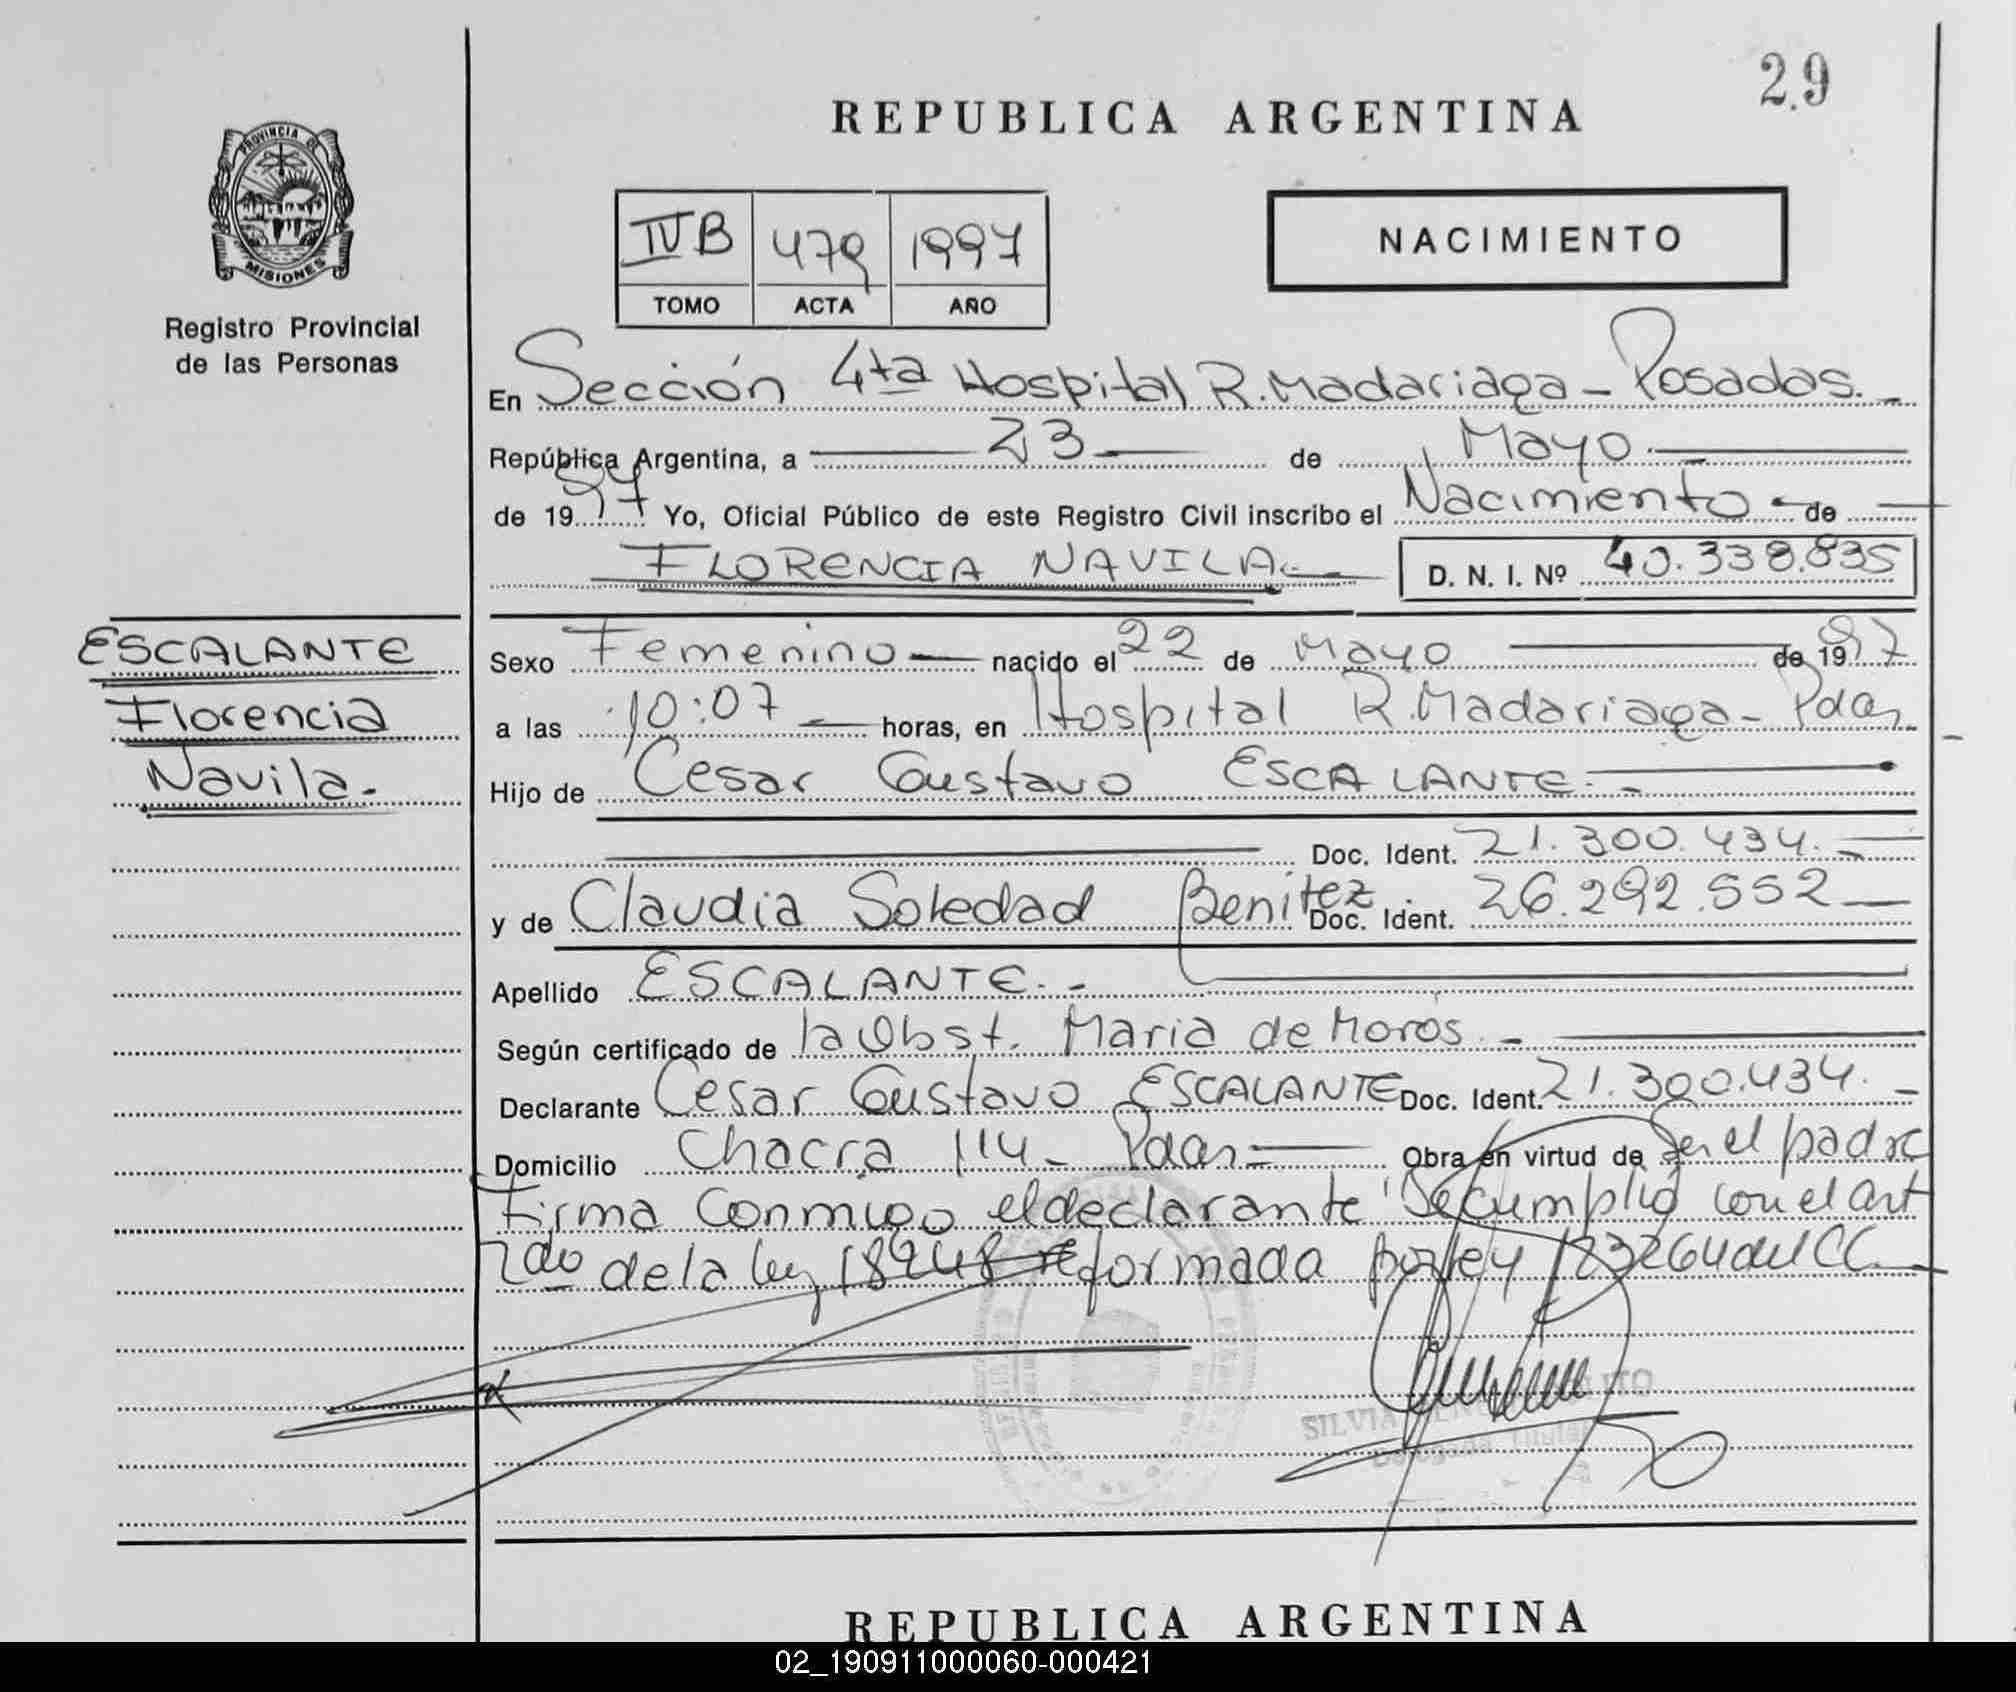 29
REPUBLICA ARGENTINA
PROVINCIA DE
MISIONES
Registro Provincial
de las Personas
IVB 479 1997
TOMO ACTA AÑO
NACIMIENTO
En Sección 4ta Hospital R. Madariaga - Posadas. -
República Argentina, a 23 de Mayo
de 1997 Yo, Oficial Público de este Registro Civil inscribo el Nacimiento - de
FLORENCIA NAVILA. D. N. I. Nº 40.338.835
ESCALANTE
Florencia
Navila.
Sexo Femenino nacido el 22 de Mayo de 1997
a las 10:07 horas, en Hospital R. Madariaga - Pdas
Hijo de Cesar Gustavo ESCALANTE. -
Doc. Ident. 21.300.434. -
y de Claudia Soledad Benitez Doc. Ident. 26.292.552
Apellido ESCALANTE. -
Según certificado de la Obst. Maria de Moros. -
Declarante Cesar Gustavo ESCALANTE Doc. Ident. 21.300.434. -
Domicilio Chacra 114 - Pdas Obra en virtud de ser el padre
Firma Conmigo el declarante Se cumplio con el art
2do de la ley 18248 reformada por ley 23264 del CC.
SILVIA
Delegada Titular
REPUBLICA ARGENTINA
02_190911000060-000421